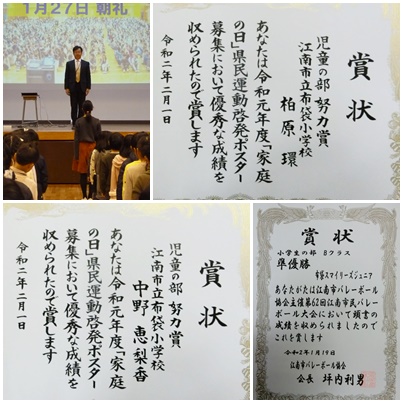 1月27日 朝礼
賞状
児童の部 努力賞
江南市立布袋小学校
柏原 環
あなたは令和元年度「家庭
の日」県民運動啓発ポスター
募集において優秀な成績を
収められたので賞します
令和二年二月一日
賞状
児童の部 努力賞
江南市立布袋小学校
中野 恵梨香
あなたは令和元年度「家庭
の日」県民運動啓発ポスター
募集において優秀な成績を
収められたので賞します
令和二年二月一日
賞状
小学生の部 Bクラス
準優勝
スマイリーズジュニア
あなたがたは江南市バレーボール
協会主催第62回江南市民バレー
ボール大会において頭書の
成績を収められましたので
これを賞します
令和2年1月19日
江南市バレーボール協会
会長 坪内利男